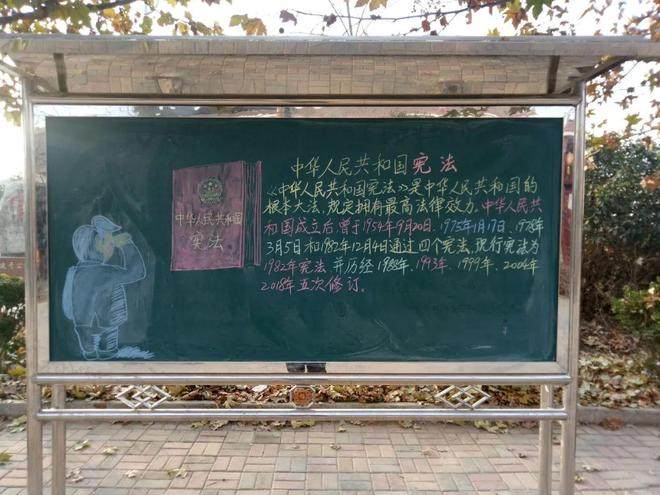 中华人民共和国宪法
《中华人民共和国宪法》是中华人民共和国的
根本大法,规定拥有最高法律效力.中华人民共
和国成立后,曾于1954年9月20日、1975年1月17日、1978年
3月5日和1982年12月4日通过四个宪法,现行宪法为
1982年宪法,并历经1988年、1993年、1999年、2004年
2018年五次修订。
中华人民共和国
宪法